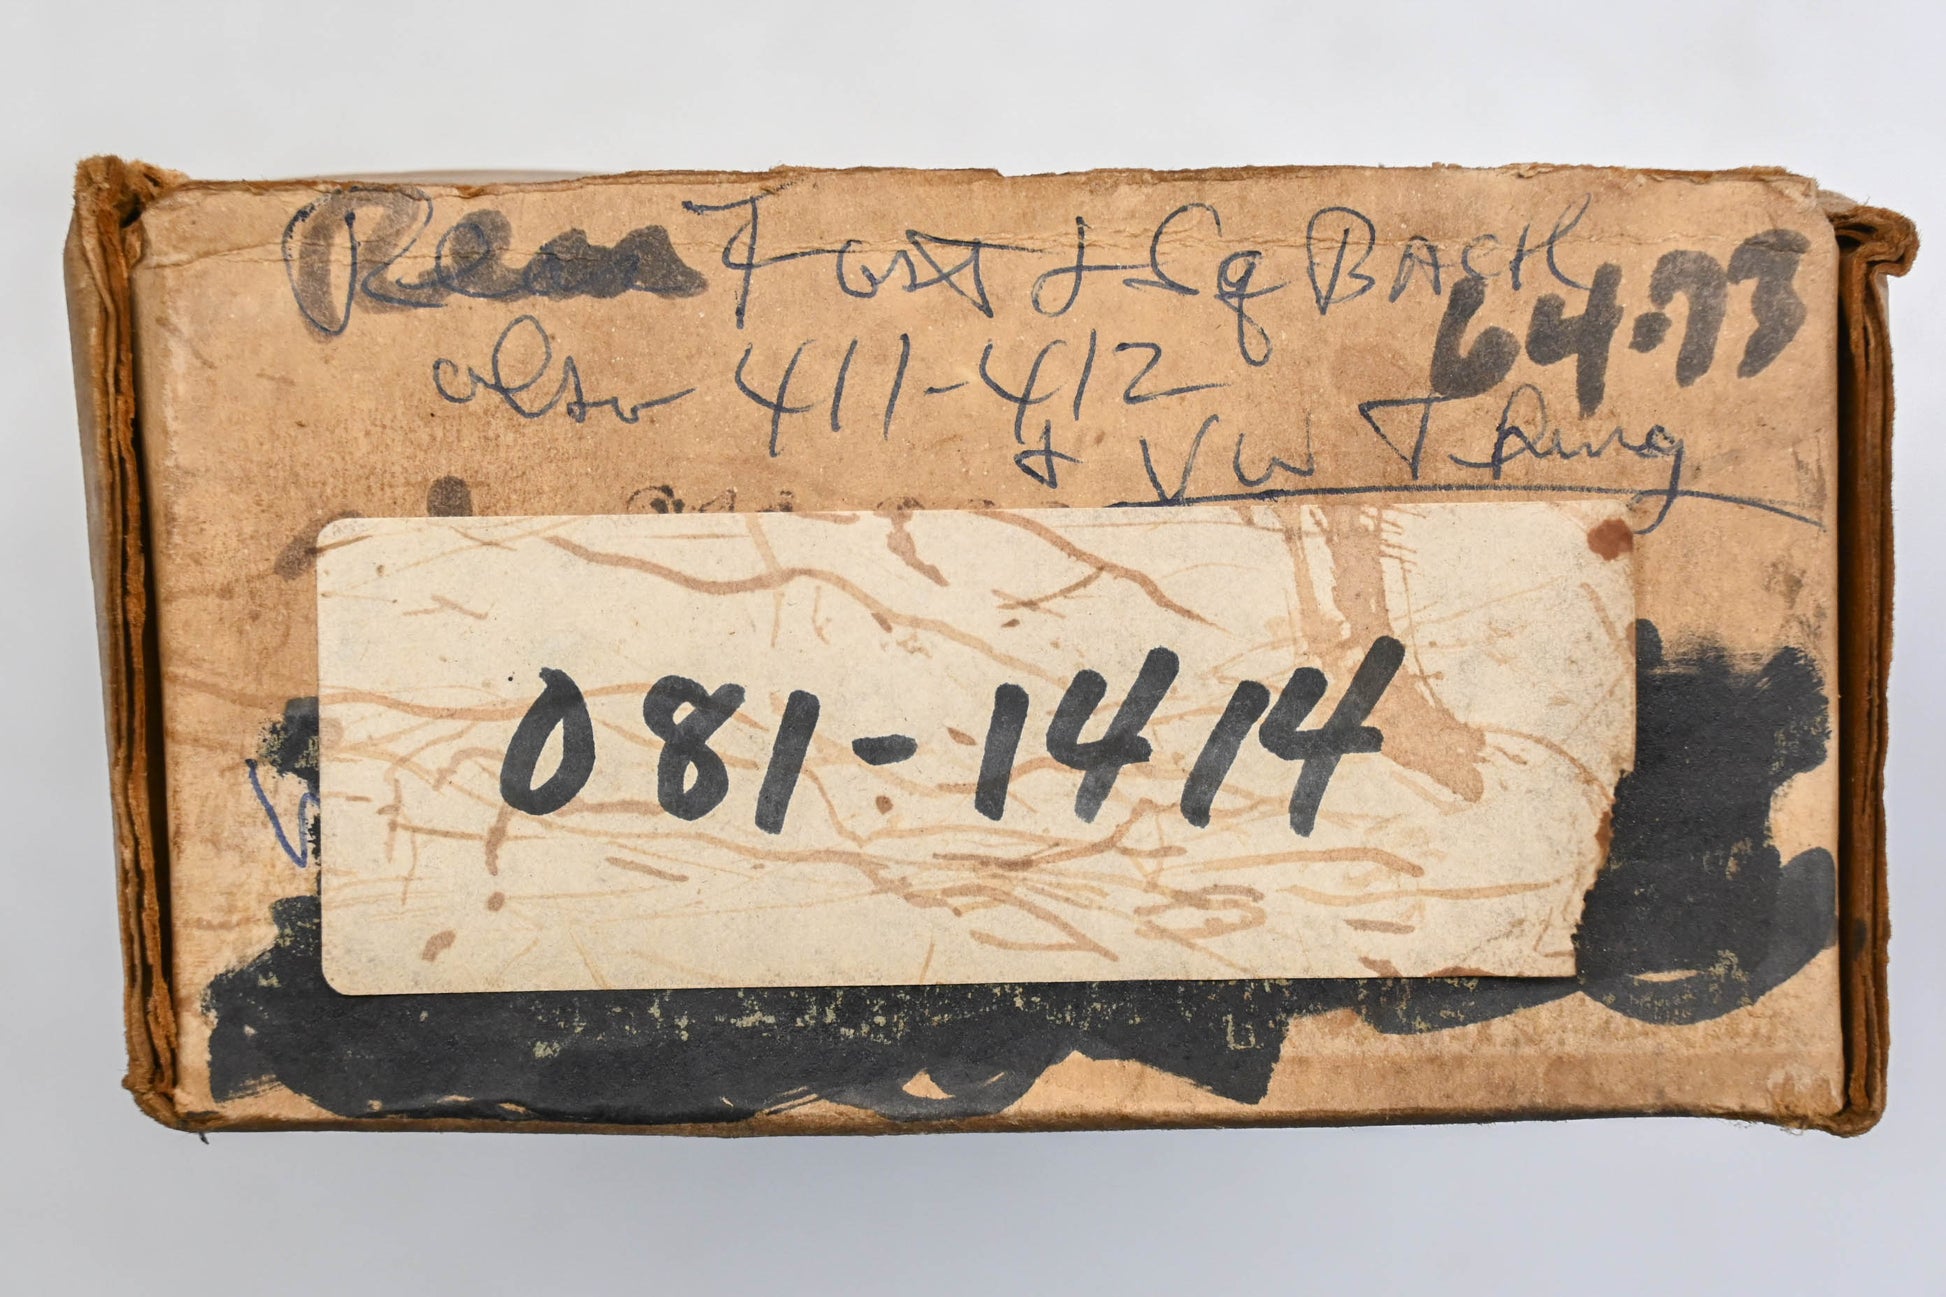 Rear Fast & Sq BACK
64-73
also 411-412
& VW Thing
081-1414